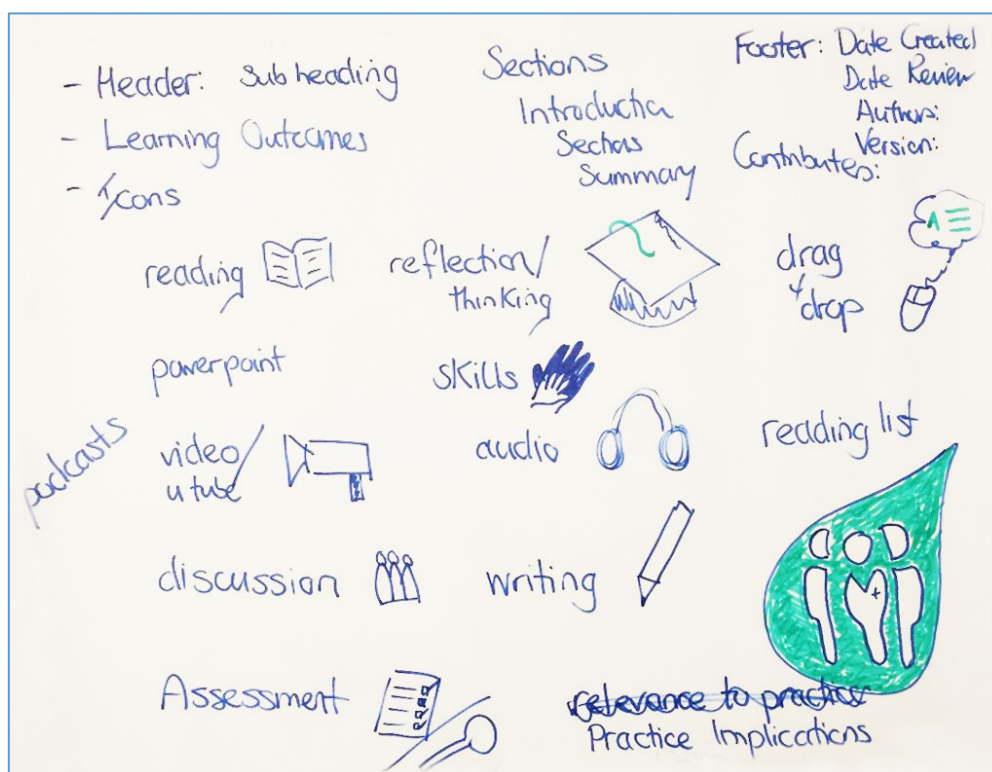 - Header: Sub heading
- Learning Outcomes
- Icons
Sections
Introduction
Sections
Summary
Footer: Date Created
Date Review
Authors:
Version:
Contributes:
reading
reflection/
thinking
drag
+ drop
powerpoint
skills
podcasts
video/
u tube
audio
reading list
discussion
writing
Assessment
relevance to practice
Practice Implications